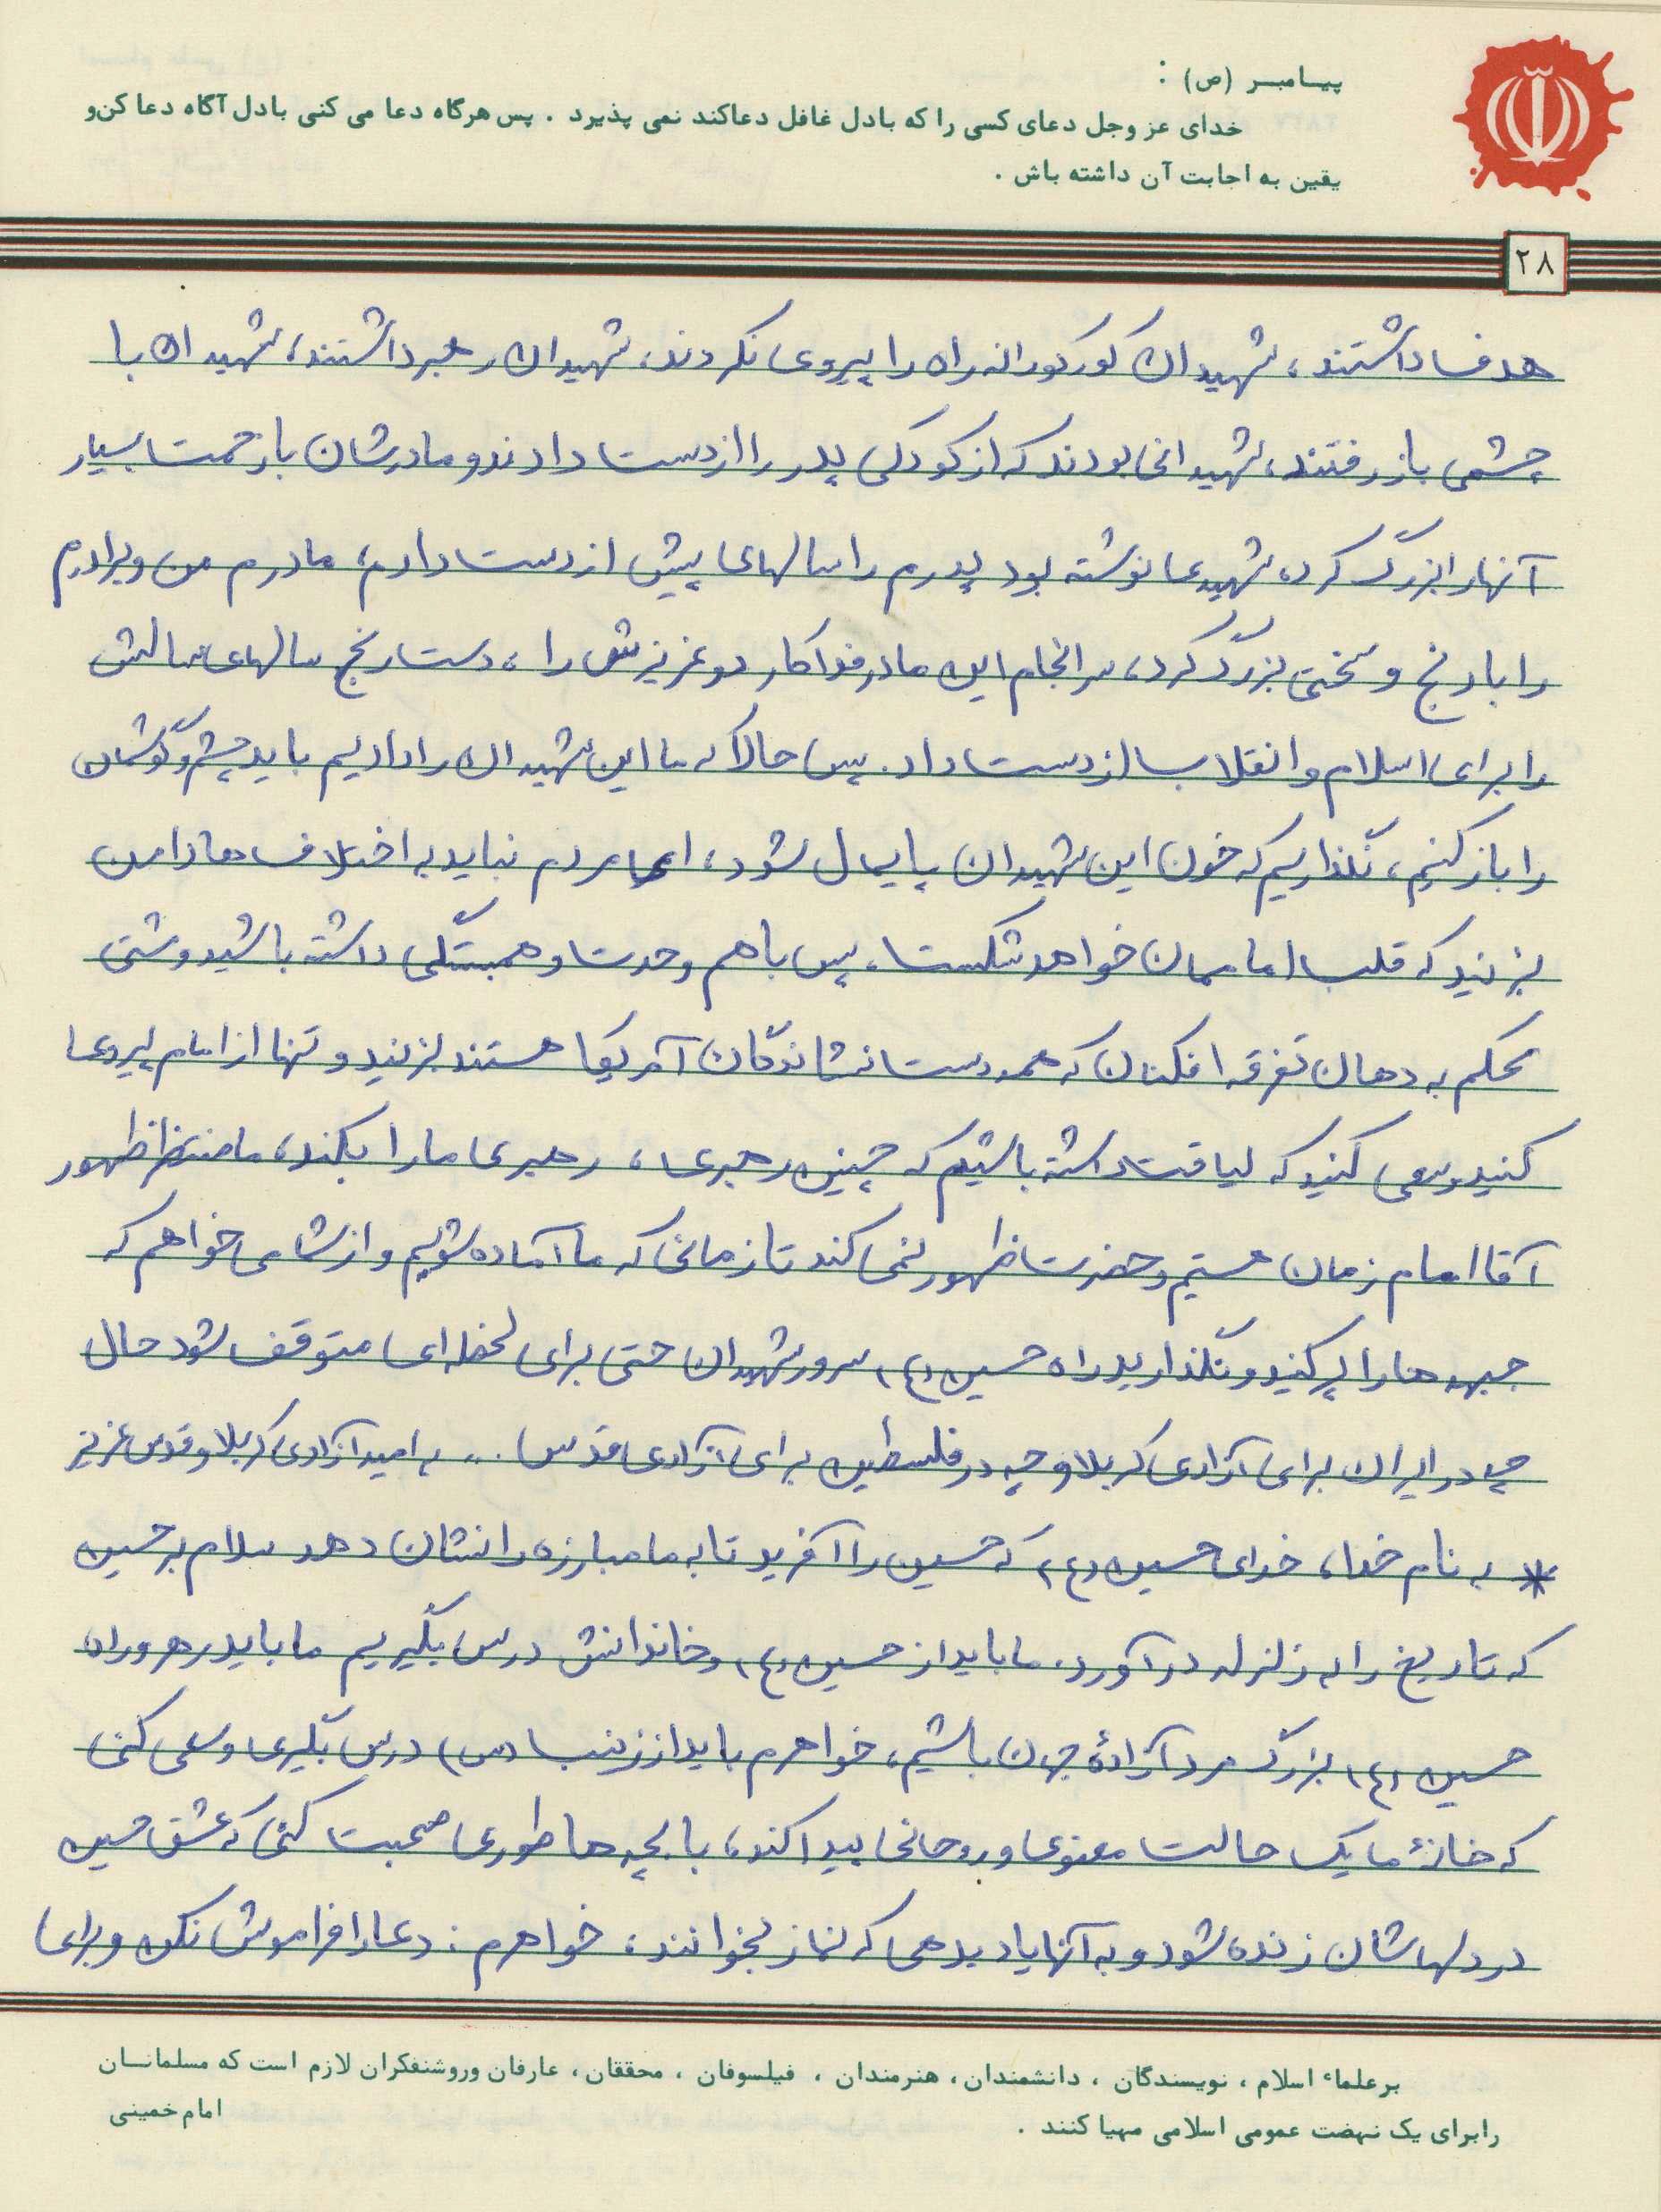 پیـامبـر (ص) :
خدای عز وجل دعای کسی را که بادل غافل دعاکند نمی پذیرد . پس هرگاه دعا می کنی بادل آگاه دعا کن و
یقین به اجابت آن داشته باش .
۲۸
هدف داشتند، شهیدان کورکورانه راه را پیروی نکردند، شهیدان رهبر داشتند، شهیدان با
چشمی باز رفتند، شهیدانی بودند که از کودکی پدر را از دست دادند و مادرشان با زحمت بسیار
آنها را بزرگ کرد، شهیدی نوشته بود پدرم را سالهای پیش از دست دادم، مادرم من و برادرم
را با رنج و سختی بزرگ کرد، سرانجام این مادر فداکار دو عزیزش را، دست رنج سالهای سالش
را برای اسلام و انقلاب از دست داد. پس حالا که ما این شهیدان را دادیم باید چشم و گوشمان
را باز کنیم، نگذاریم که خون این شهیدان پایمال شود، ای مردم نباید به اختلاف ها دامن
بزنید که قلب اماممان خواهد شکست، پس با هم وحدت و همبستگی داشته باشید و مشتی
محکم به دهان تفرقه افکنان که همه دست نشاندگان آمریکا هستند بزنید و تنها از امام پیروی
کنید و سعی کنید که لیاقت داشته باشیم که چنین رهبری، رهبری ما را بکند، ما منتظر ظهور
آقا امام زمان هستیم و حضرت ظهور نمی کند تا زمانی که ما آماده شویم و از شما می خواهم که
جبهه ها را پر کنید و نگذارید راه حسین (ع) سرور شهیدان حتی برای لحظه ای متوقف شود حال
چه در ایران برای آزادی کربلا و چه در فلسطین برای آزادی قدس ... به امید آزادی کربلا و قدس عزیز
* به نام خدا، خدای حسین (ع) که حسین را آفرید تا به ما مبارزه را نشان دهد سلام بر حسین
که تاریخ را به زلزله درآورد. ما باید از حسین (ع) و خاندانش درس بگیریم ما باید رهروران
حسین (ع) بزرگ مرد آزادهٔ جهان باشیم، خواهرم باید از زینب (س) درس بگیری و سعی کنی
که خانهٔ ما یک حالت معنوی و روحانی پیدا کند، با بچه ها طوری صحبت کنی که عشق حسین
در دلهاشان زنده شود و به آنها یاد بدهی که نماز بخوانند، خواهرم: دعا را فراموش نکن و برای
برعلماء اسلام ، نویسندگان ، دانشمندان، هنرمندان ، فیلسوفان ، محققان، عارفان وروشنفکران لازم است که مسلمانـان
رابرای یک نهضت عمومی اسلامی مهیا کنند .
امام خمینی